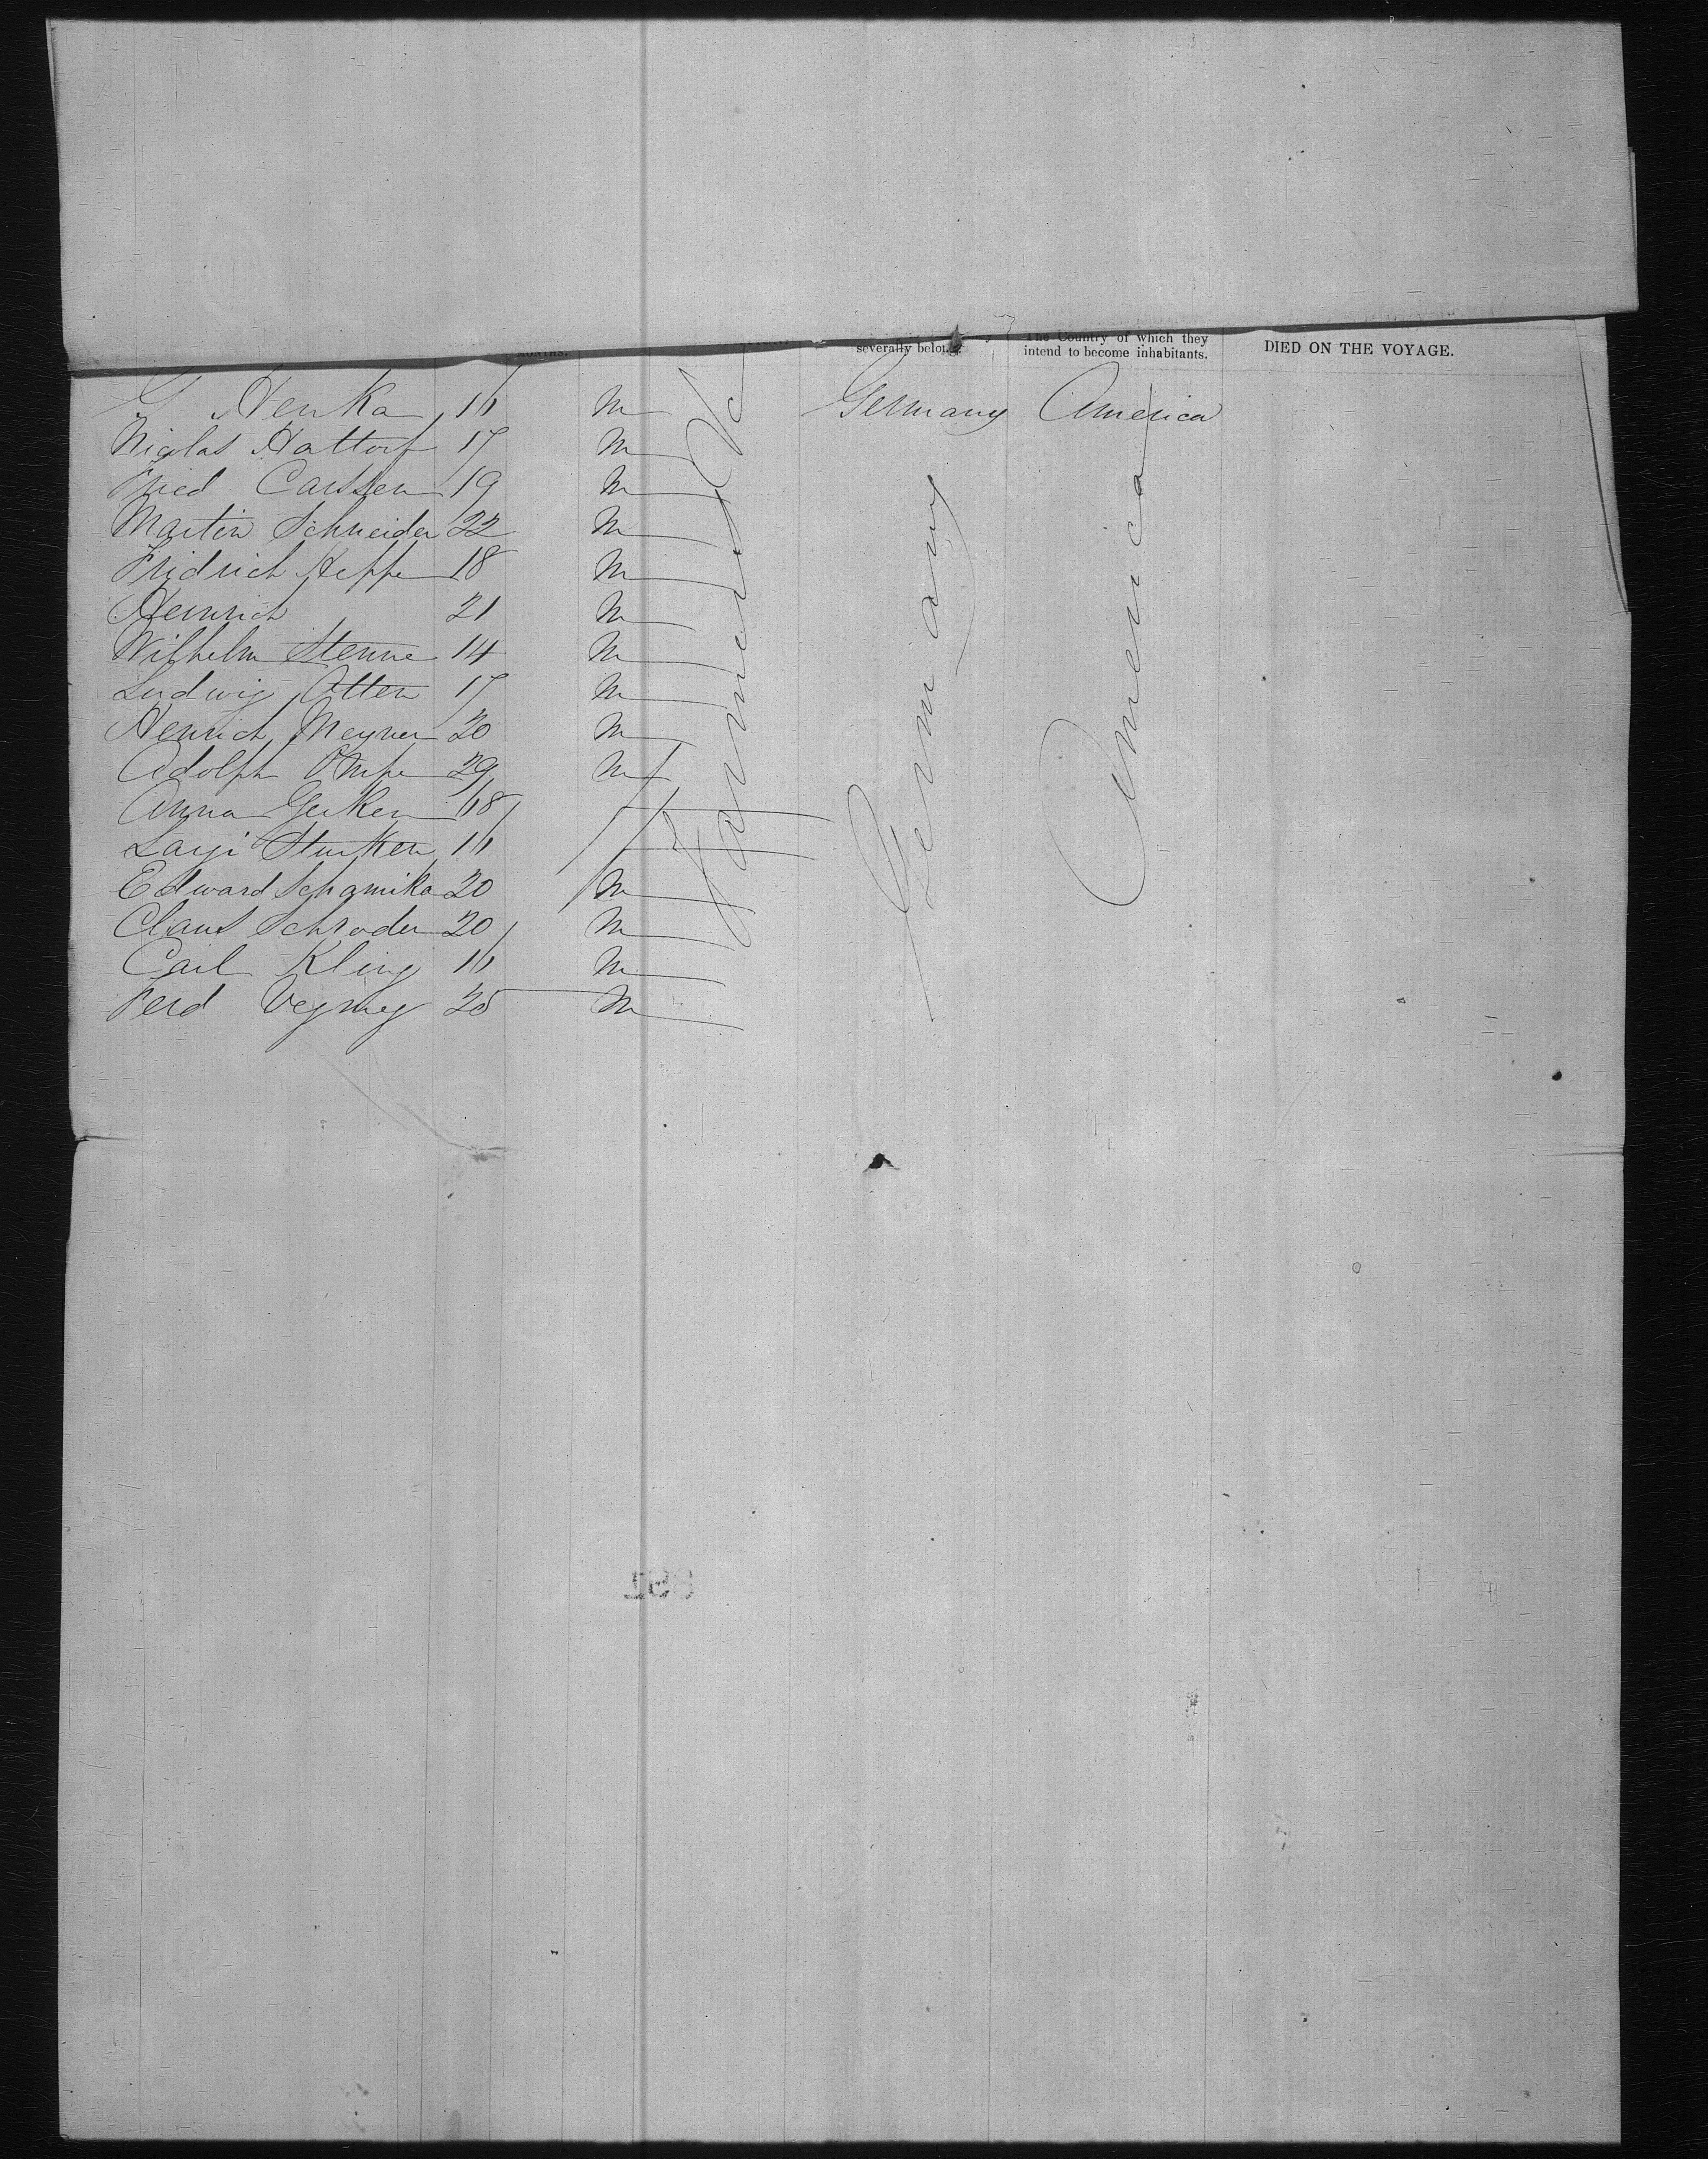 severally belong. The Country of which they intend to become inhabitants. DIED ON THE VOYAGE.
G Henka 16 m Germany America
Nicolas Hattorf 17 m
Fried Carsten 19 m
Martin Schneider 22 m
Fridrich Heppe 18 m
Heinrich 21 m
Wilhelm Stenne 14 m
Ludwig Otten 17 m
Henrich Meyner 20 m
Adolph 29 m
Anna Gerken 18 f
Sturken 16 f
Edward Schamika 20 m
Claus Schroder 20 m
Carl Kling 16 m
Ferd 25 m
Farmer
Germany
America